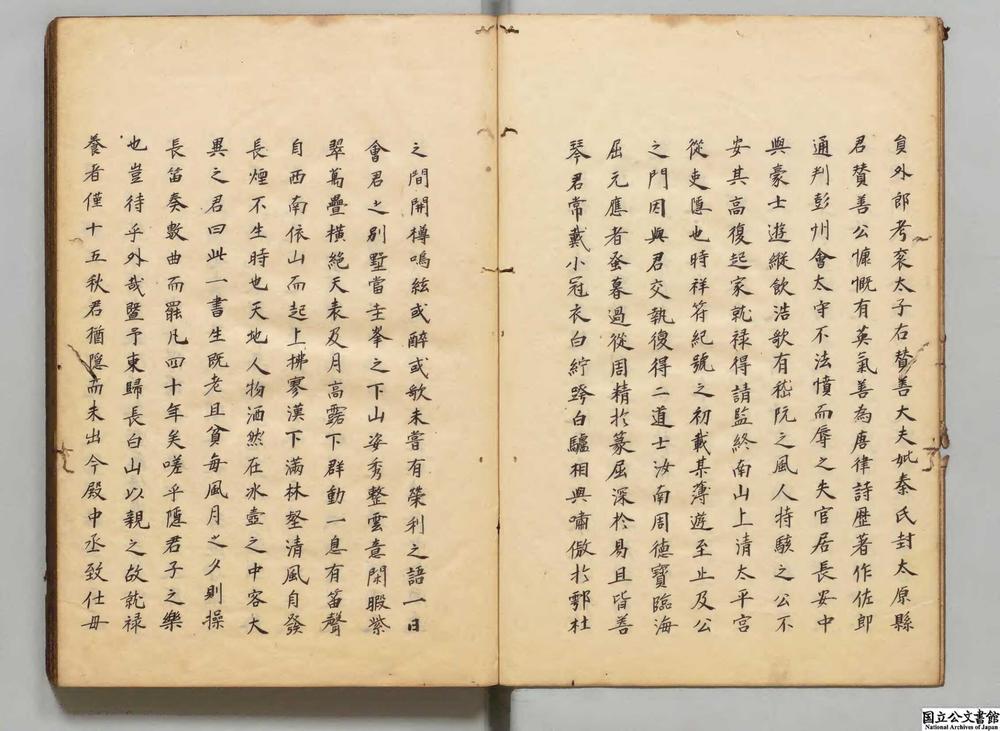 貟外郎考衮太子右賛善大夫妣秦氏封太原縣
君賛善公慷慨有英氣善為唐律詩歴著作佐郎
通判彭州會太守不法憤而辱之失官居長安中
與豪士遊縱飲浩歌有嵇阮之風人持駭之公不
安其高復起家就禄得請監終南山上清太平宮
從吏隱也時祥符紀號之初載某薄遊至止及公
之門因與君交執復得二道士汝南周德寳臨海
屈元應者蚤暮過從周精於篆屈深於易且皆善
琴君常戴小冠衣白紵跨白驢相與嘯傲於鄠杜
之間開樽鳴絃或醉或歌未嘗有榮利之語一日
會君之別墅當圭峯之下山姿秀整雲意閑暇紫
翠萬疊橫絶天表及月高露下群動一息有笛聲
自西南依山而起上拂寥漢下滿林壑清風自發
長煙不生時也天地人物洒然在冰壺之中客大
異之君曰此一書生既老且貧每風月之夕則操
長笛奏數曲而罷凡四十年矣嗟乎隱君子之樂
也豈待乎外哉暨予東歸長白山以親之故就禄
養者僅十五秋君猶隱而未出今殿中丞致仕毋
国立公文書館
National Archives of Japan